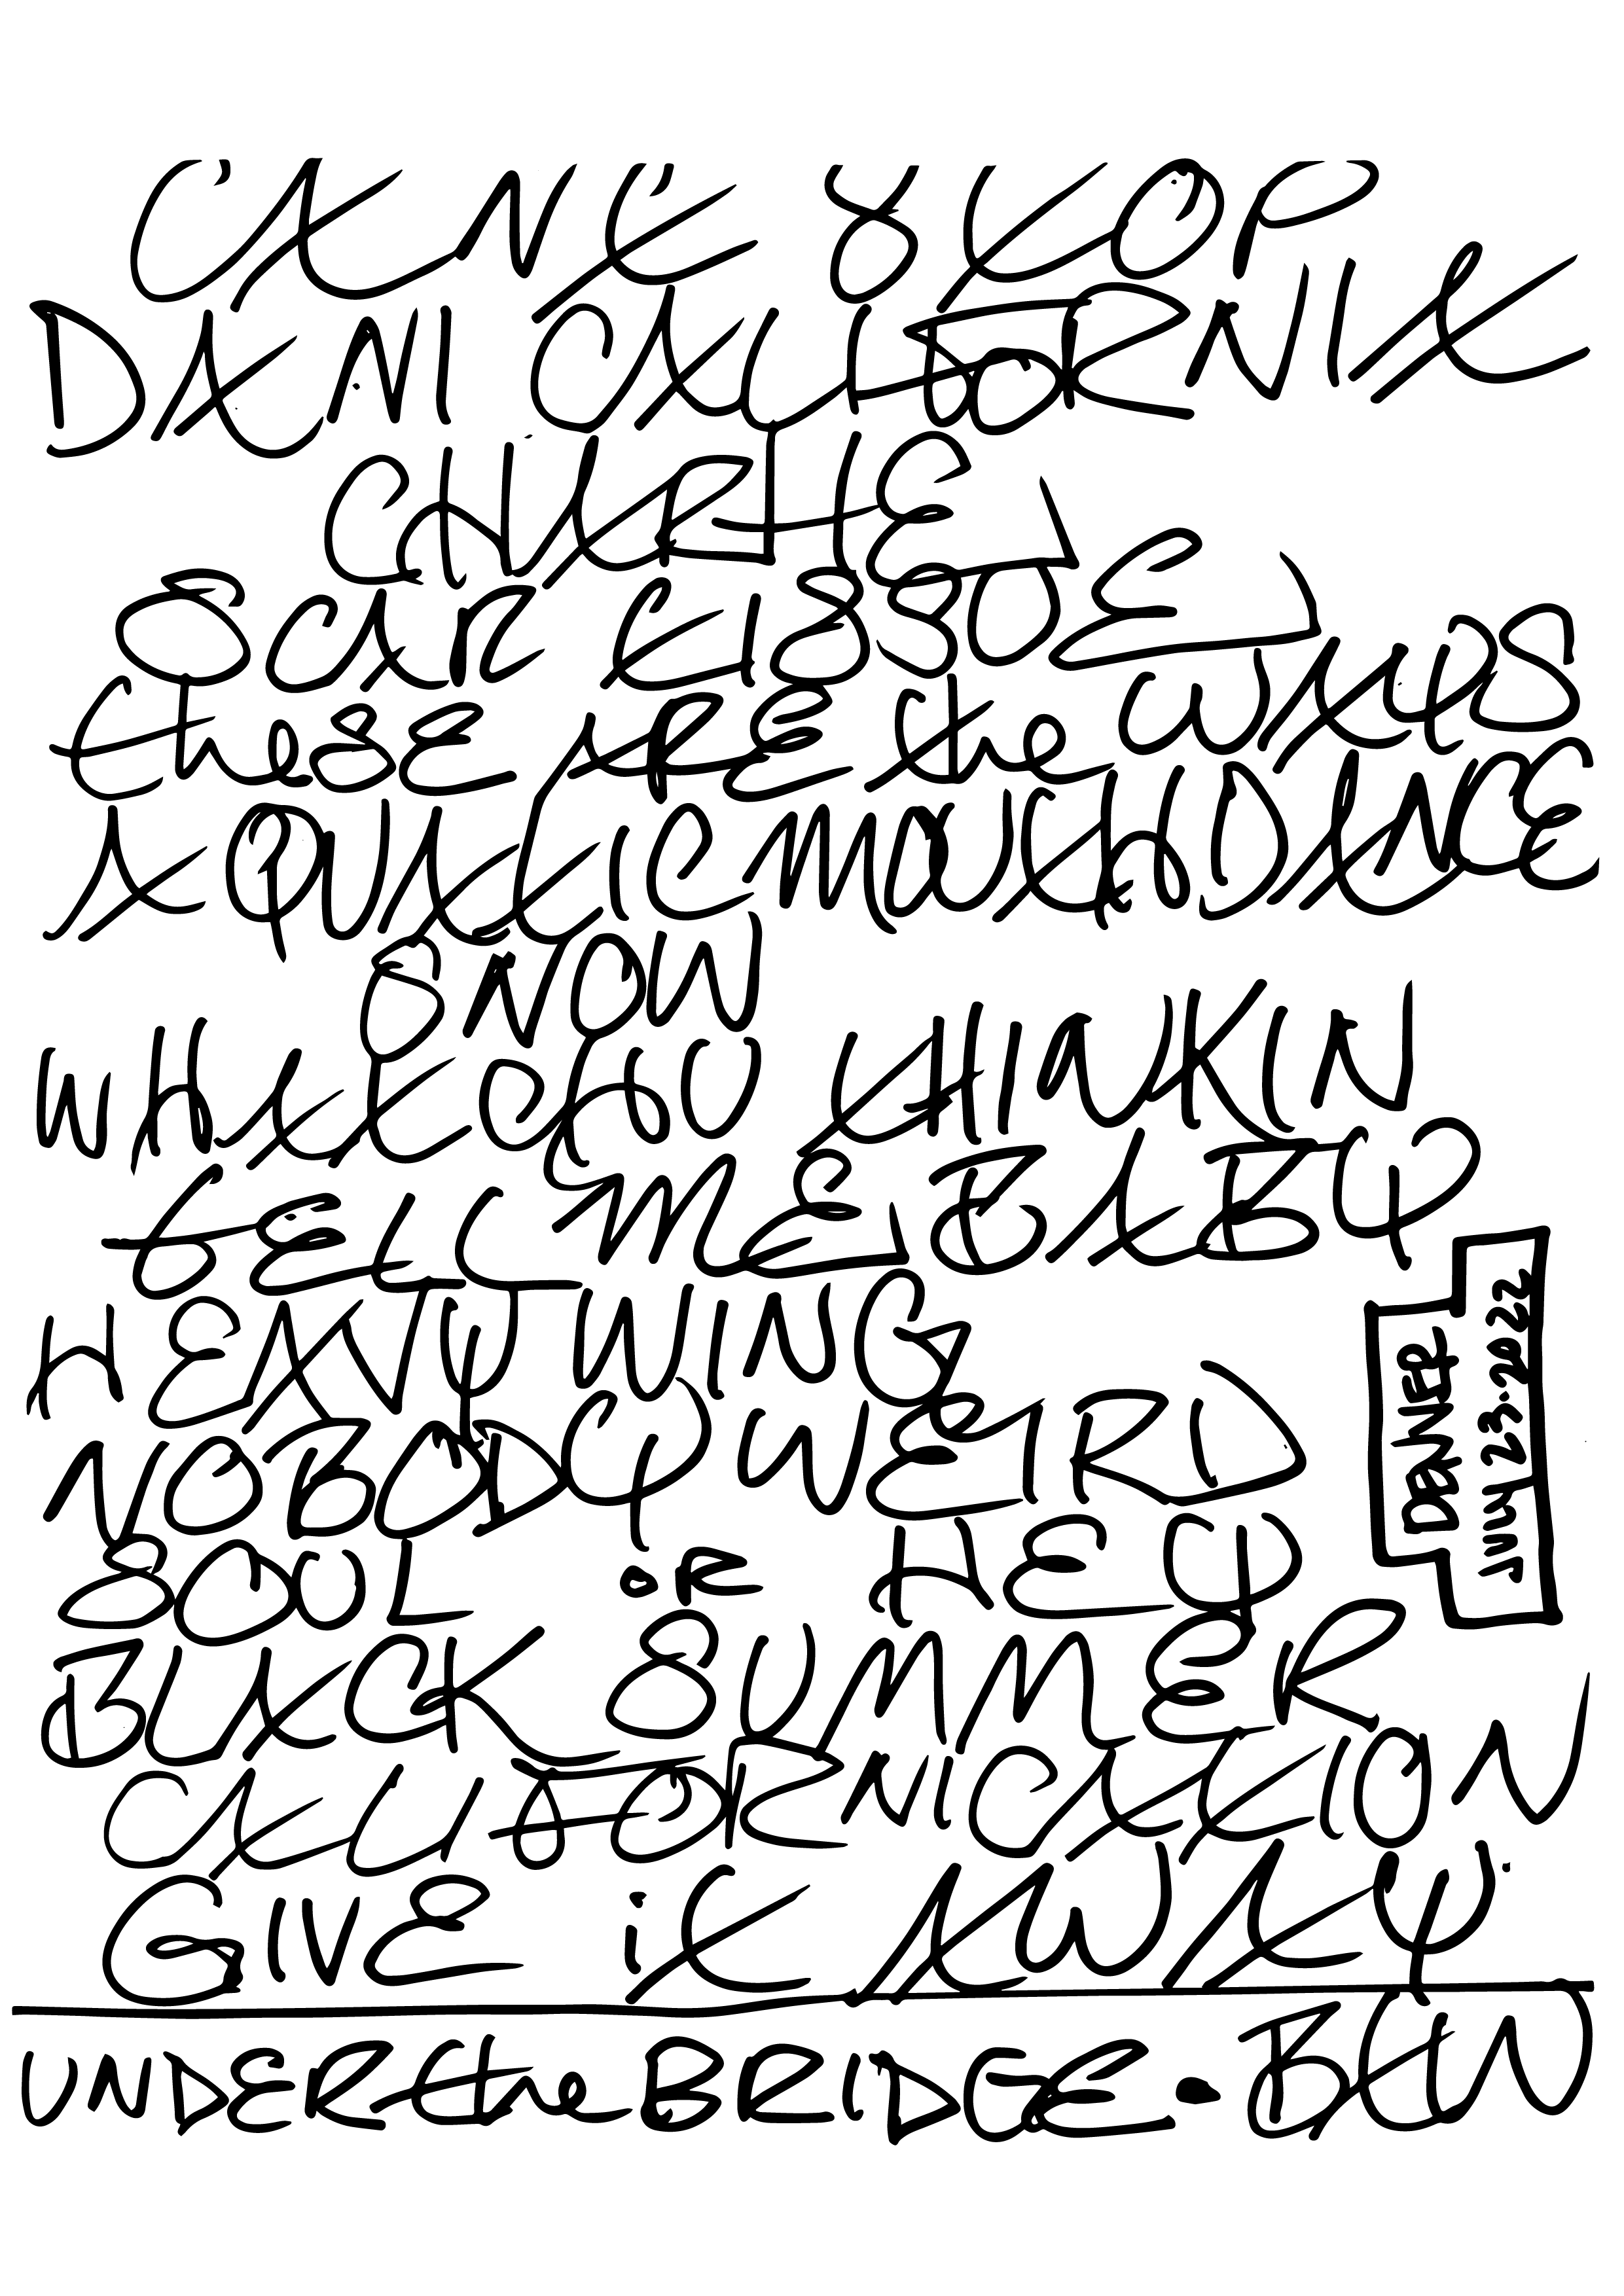 CAN'T STOP
DANI CALIFORNIA
CHARLIE
SCAR TISSUE
these ARE the WAYS
AQUATIC MOUTH DANCE
SNOW
WHATCHU THINKIN
TELL ME BABY
HEAVY WING
NOBODY WEIRD
SOUL OR HEY
BLACK SUMMER
CALIFORNICATION
GIVE it AWAY
UNDER the BRIDGE • BTW
July 23. 2022